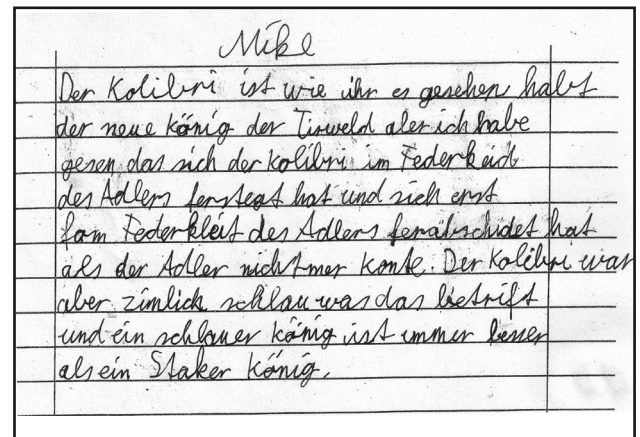 Mike
Der Kolibri ist wie ihr es gesehen habt
der neue König der Tirweld aber ich habe
gesen das sich der Kolibri im Federkeid
des Adlers ferstegt hat und sich erst
fom Federkleit des Adlers ferabschidet hat
als der Adler nicht mer konte. Der Kolibri war
aber zimlich schlau was das betrift
und ein schlauer könig ist immer besser
als ein Staker König.